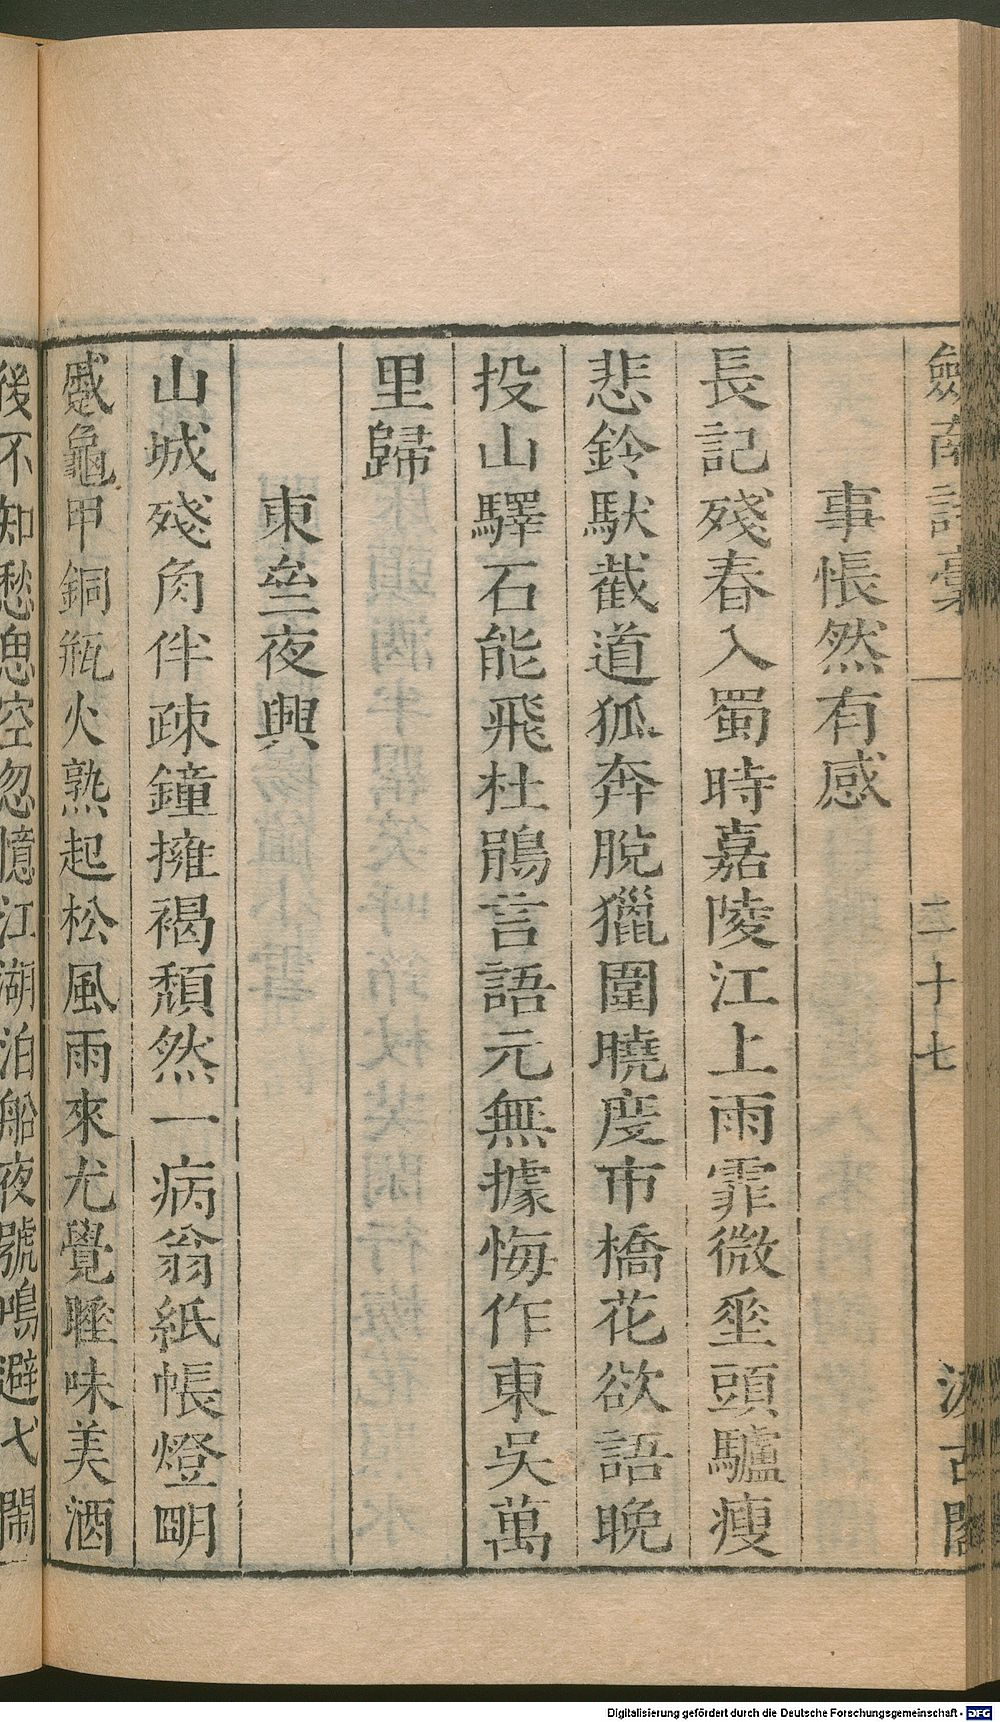 劒南詩稾
二十七
汲古閣
事悵然有感
長記殘春入蜀時嘉陵江上雨霏微壟頭驢瘦
悲鈴馱截道狐奔脫獵圍曉度市橋花欲語晚
投山驛石能飛杜鵑言語元無據悔作東吳萬
里歸
東堂夜興
山城殘角伴疎鐘擁褐頹然一病翁紙帳燈明
蹙龜甲銅瓶火熟起松風雨來尤覺睡味美酒
後不知愁思空忽憶江湖泊船夜號鳴避弋鬧
Digitalisierung gefördert durch die Deutsche Forschungsgemeinschaft - DFG